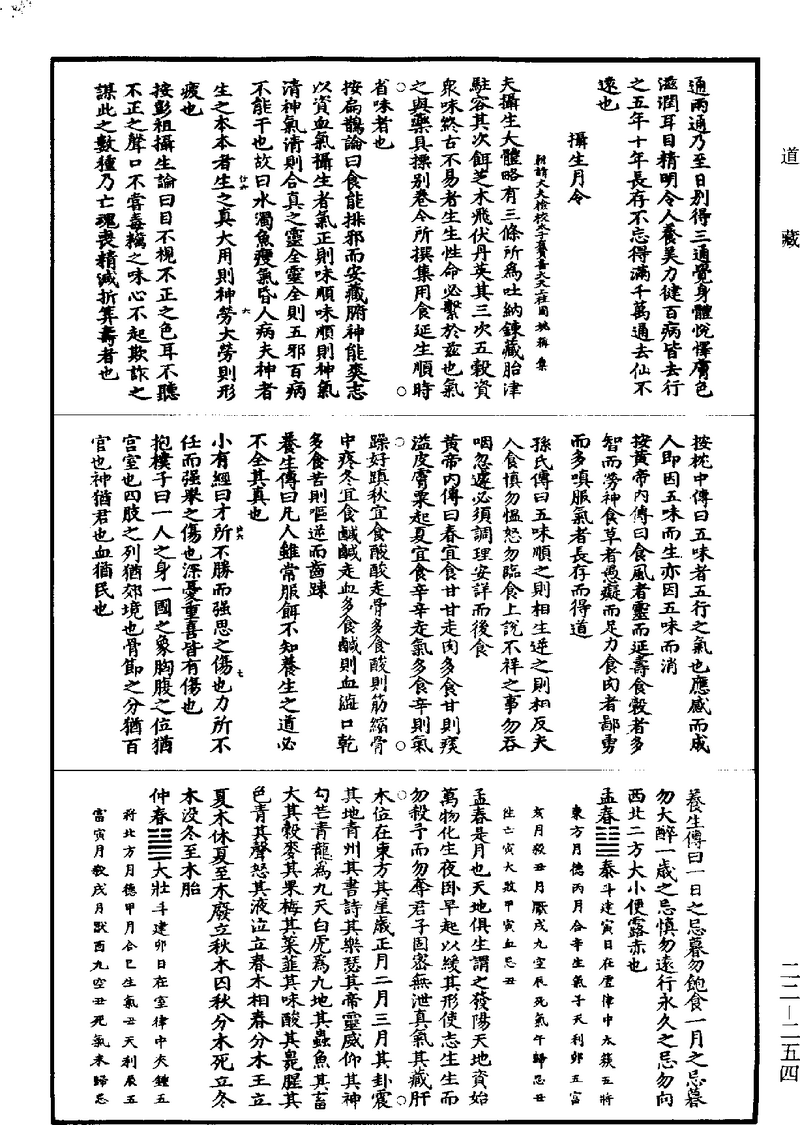 道藏
通兩通乃至日別得三通覺身體悅懌膚色
滋潤耳目精明令人養美力健百病皆去行
之五年十年長存不忘得滿千萬遍去仙不
遠也
攝生月令
朝請大夫檢校太子賓客大夫上柱國姚稱集
夫攝生大體略有三條所爲吐納鍊藏胎津
駐容其次餌芝术飛伏丹英其三次五穀資
衆味終古不易者生生性命必繫於兹也氣
之與藥具摽别卷今所撰集用食延生順時
省味者也
按扁鵲論曰食能排邪而安藏腑神能爽志
以資血氣攝生者氣正則味順味順則神氣
清神氣清則合真之靈全靈全則五邪百病
不能干也故曰水濁魚瘦氣昏人病夫神者
生之本本者生之真大用則神勞大勞則形
疲也
按彭祖攝生論曰目不視不正之色耳不聽
不正之聲口不嘗毒糲之味心不起欺詐之
謀此之數種乃亡魂喪精減折筭壽者也
按枕中傳曰五味者五行之氣也應感而成
人即因五味而生亦因五味而消
按黃帝內傳曰食風者靈而延壽食穀者多
智而勞神食草者愚癡而足力食肉者鄙勇
而多嗔服氣者長存而得道
孫氏傳曰五味順之則相生逆之則相反夫
人食慎勿愠怒勿臨食上說不祥之事勿吞
咽忽遽必須調理安詳而後食
黃帝內傳曰春宜食甘甘走肉多食甘則痰
溢皮膚粟起夏宜食辛辛走氣多食辛則氣
躁好瞋秋宜食酸酸走骨多食酸則筋縮骨
中疼冬宜食鹹鹹走血多食鹹則血澁口乾
多食苦則嘔逆而齒踈
養生傳曰凡人雖常服餌不知養生之道必
不全其真也
小有經曰才所不勝而强思之傷也力所不
任而强舉之傷也深憂重喜皆有傷也
抱樸子曰一人之身一國之象胸腹之位猶
宫室也四肢之列猶郊境也骨節之分猶百
官也神猶君也血猶民也
養生傳曰一日之忌暮勿飽食一月之忌暮
勿大醉一歲之忌慎勿遠行永久之忌勿向
西北二方大小便露赤也
孟春䷊泰斗建寅日在虛律中太簇五將
東方月德丙月合辛生氣子天利卯五富
亥月殺丑月厭戌九空辰死氣午歸忌丑
往亡寅大敗甲寅血忌丑
孟春是月也天地俱生謂之發陽天地資始
萬物化生夜卧早起以緩其形使志生生而
勿殺予而勿奪君子固密無泄真氣其藏肝
木位在東方其星歲正月二月三月其卦震
其地青州其書詩其樂瑟其帝靈威仰其神
勾芒青龍爲九天白虎爲九地其蟲魚其畜
犬其穀麥其果梅其菜韮其味酸其臭腥其
色青其聲怒其液泣立春木相春分木王立
夏木休夏至木廢立秋木囚秋分木死立冬
木没冬至木胎
仲春䷡大壯斗建卯日在室律中夾鍾五
將北方月德甲月合巳生氣丑天利辰五
富寅月殺戌月厭酉九空丑死氣未歸忌
二二—二五四